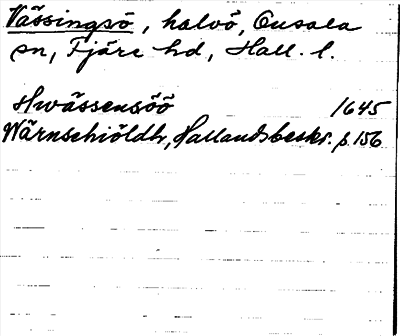 Vässingsö, halvö, Onsala
sn, Fjäre hd, Hall. l.
Hwässensöö 1645
Wärnschiöldh, Hallandsbeskr. p. 156